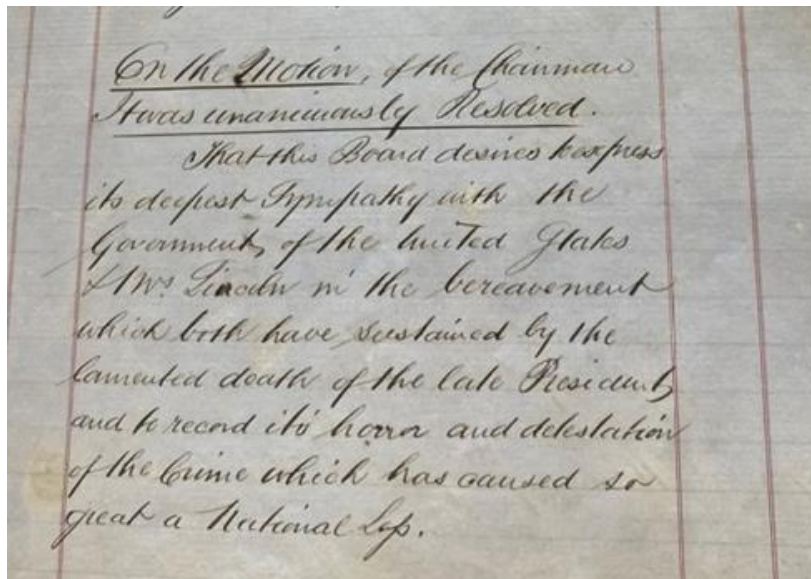 On the Motion, of the Chairman
It was unanimously Resolved.
That this Board desires to express
its deepest Sympathy with the
Government, of the United States
& Mrs. Lincoln in the bereavement
which both have sustained by the
lamented death of the late President,
and to record its horror and detestation
of the Crime which has caused so
great a National Loss.